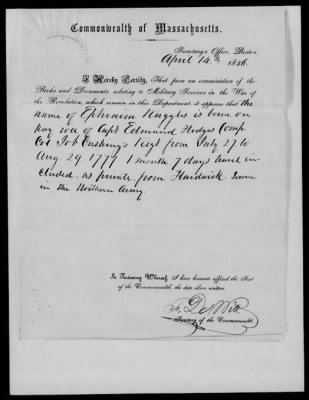 Commonwealth of Massachusetts.
Secretary's Office, Boston,
April 14th 1856.
I Hereby Certify, That from an examination of the
Books and Documents relating to Military Services in the War of
the Revolution, which remain in this Department, it appears that the
name of Ephraim Ruggles is borne on
pay roll of Capt Edmund Hodges Comp
Col Job Cushing's Regt from July 27 to
Aug. 29 1777 1 month 7 days travel in
cluded. as private. from Hardwick. Served
in the Northern Army.
In Testimony Whereof, I have hereunto affixed the Seal
of the Commonwealth, the date above written.
F. DeWitt
Secretary of the Commonwealth.